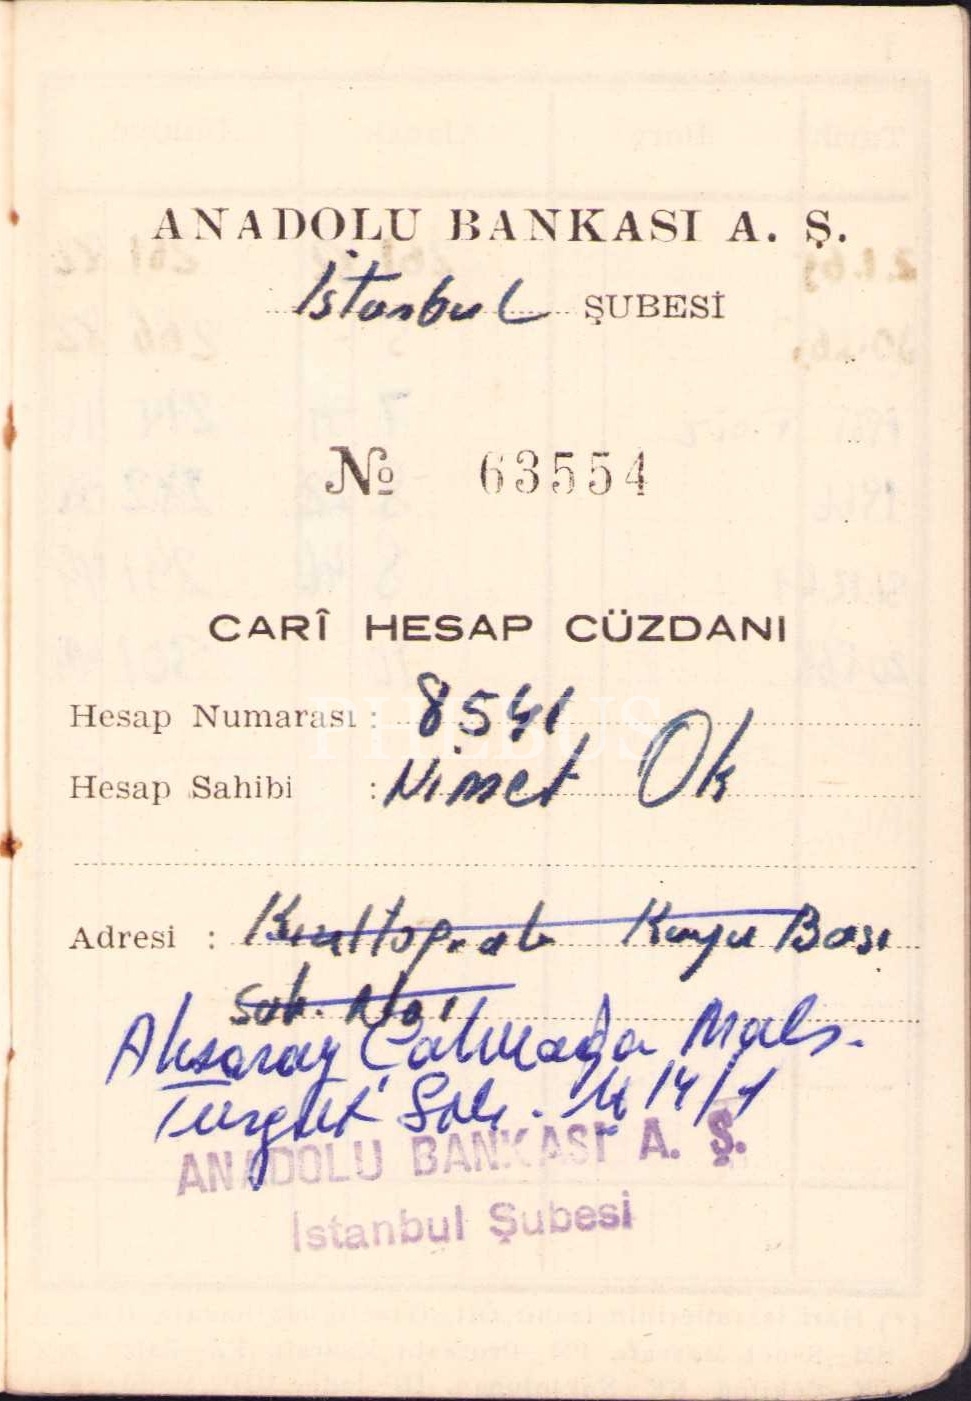 ANADOLU BANKASI A. Ş.
İstanbul ŞUBESİ
№ 63554
CARÎ HESAP CÜZDANI
Hesap Numarası : 8541
PHEBUS
Hesap Sahibi : Nimet Ok
Adresi : Kızıltoprak Kuyu Başı
Sok. No:
Aksaray Çakırağa Mah.
Turgut Sok. 14/1
ANADOLU BANKASI A. Ş.
İstanbul Şubesi